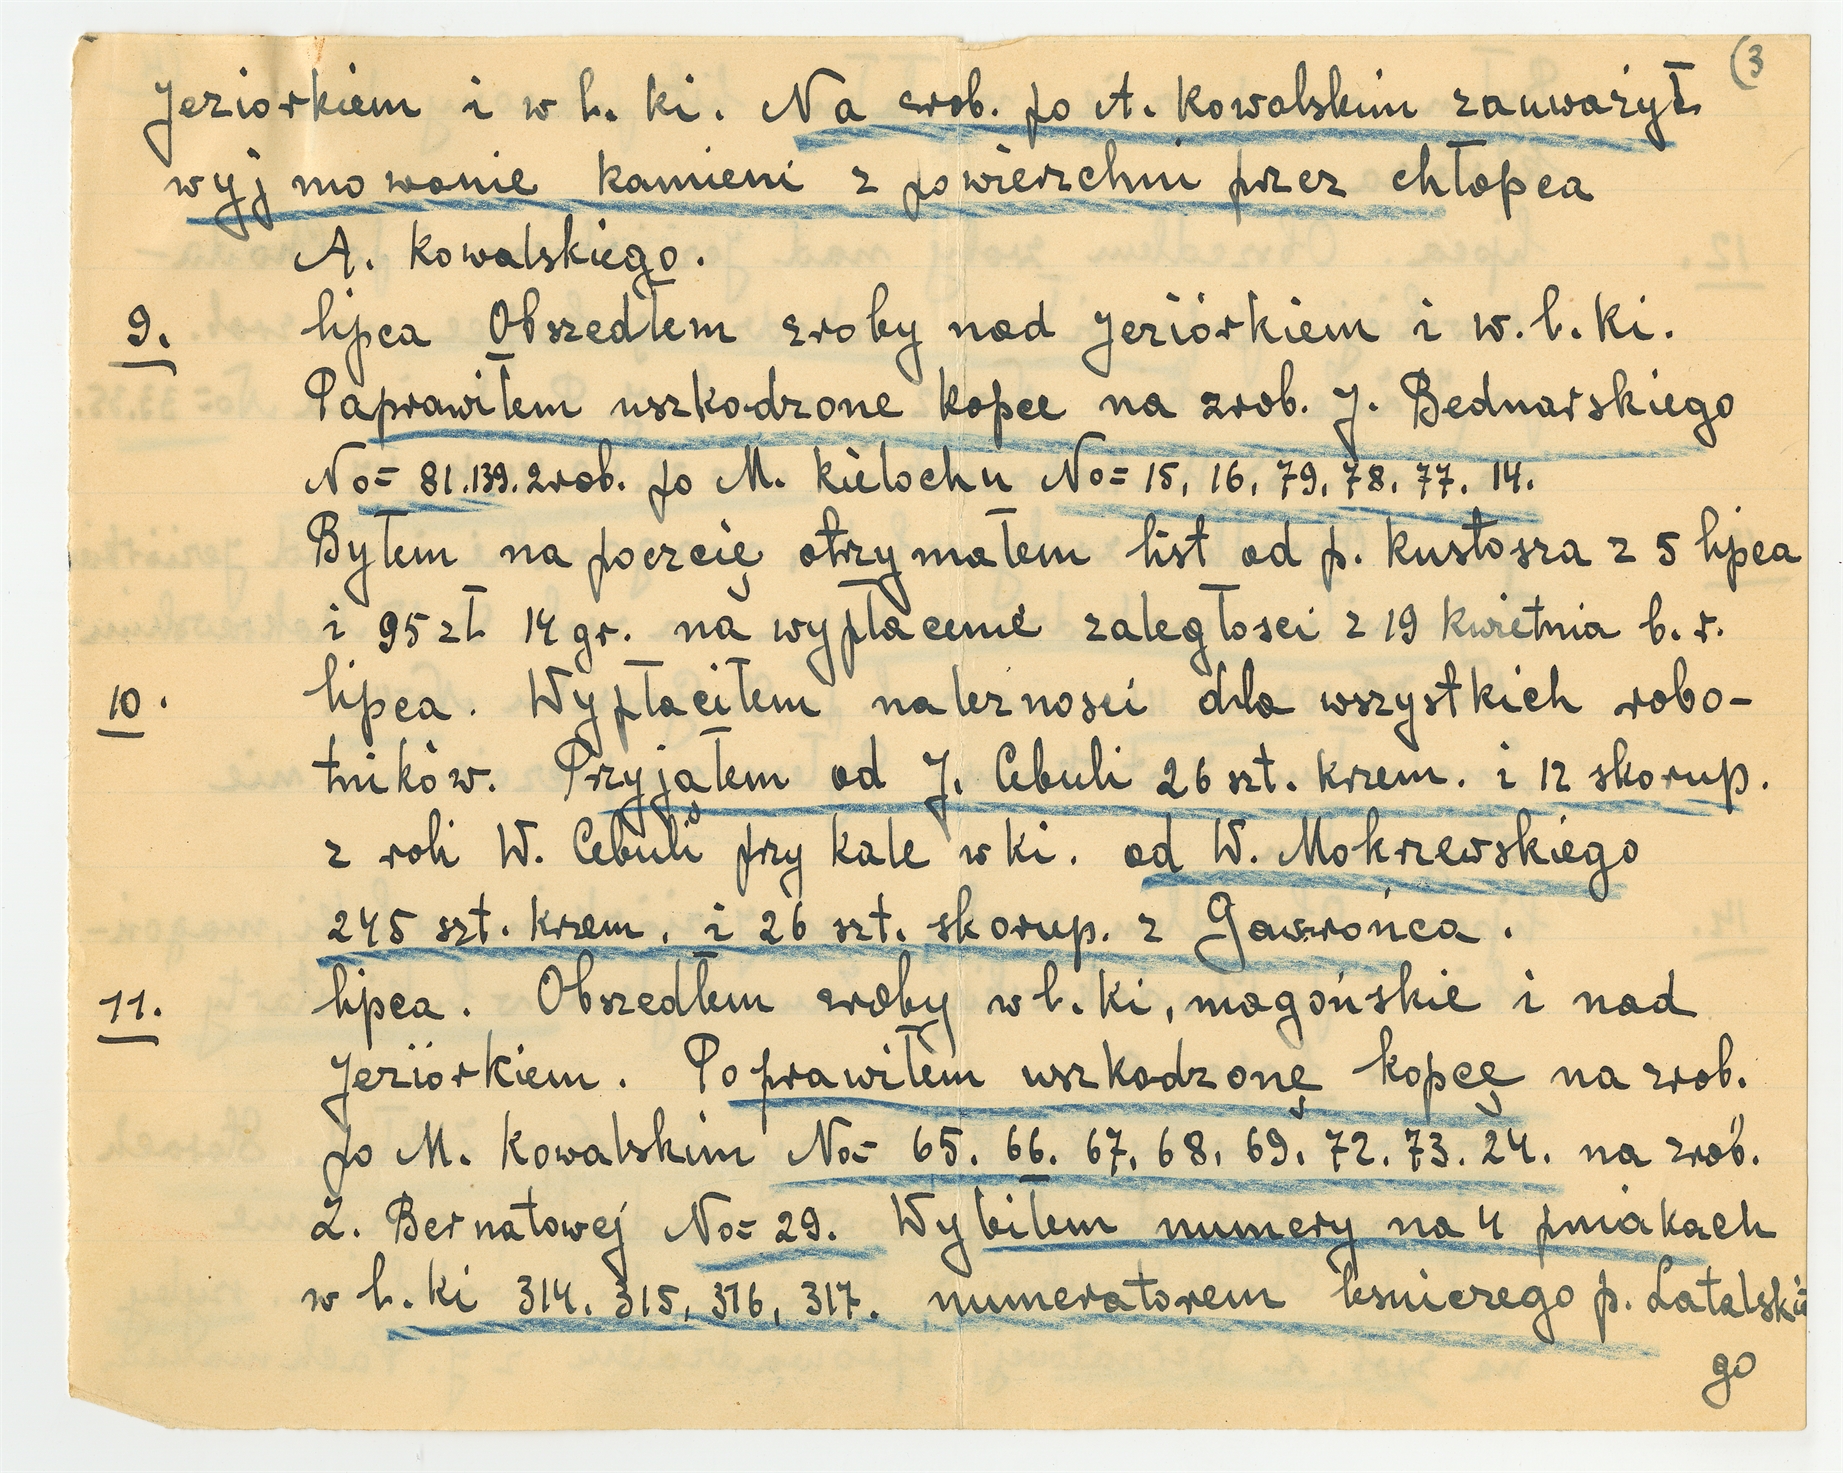 (3
Jeziorkiem i w l. ki. Na zrob. po A. Kowalskim zauważył
wyjmowanie kamieni z powierzchni przez chłopca
A. Kowalskiego.
9. lipca Obszedłem zroby nad Jeziórkiem i w. l. ki.
Paprawiłem uszkodzone kopce na zrob. J. Bednarskiego
No= 81.139. Zrob. po M. Kielochu No= 15, 16, 79, 78, 77. 14.
Byłem na poczcię otrzymałem list od p. Kustosza z 5 lipca
i 95 zł 14 gr. na wypłacenie zaległosci z 19 kwietnia b. r.
10. lipca. Wypłaciłem należnosci dla wszystkich robo-
tników. Przyjąłem od J. Cebuli 26 szt. krzem. i 12 skorup.
z roli W. Cebuli przy kale w ki. od W. Mokrzewskiego
245 szt. krzem. i 26 szt. skorup. z Gawrońca.
11. lipca. Obszedłem zroby w l. ki, magońskie i nad
Jeziórkiem. Poprawiłem uszkodzonę kopcę na zrob.
po M. Kowalskim No= 65. 66. 67. 68. 69. 72. 73. 24. na zrob.
Z. Bernatowej No= 29. Wybiłem numery na 4 pniakach
w l. ki 314. 315, 316, 317. numeratorem lesniczego p. Latalskie
go